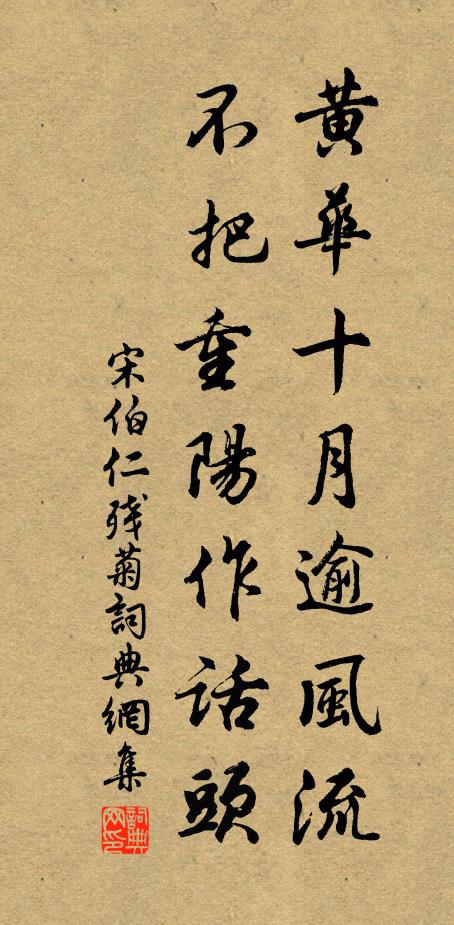 黄華十月逾風流
不把重陽作話頭
宋伯仁残菊詞典網集
詞典網印